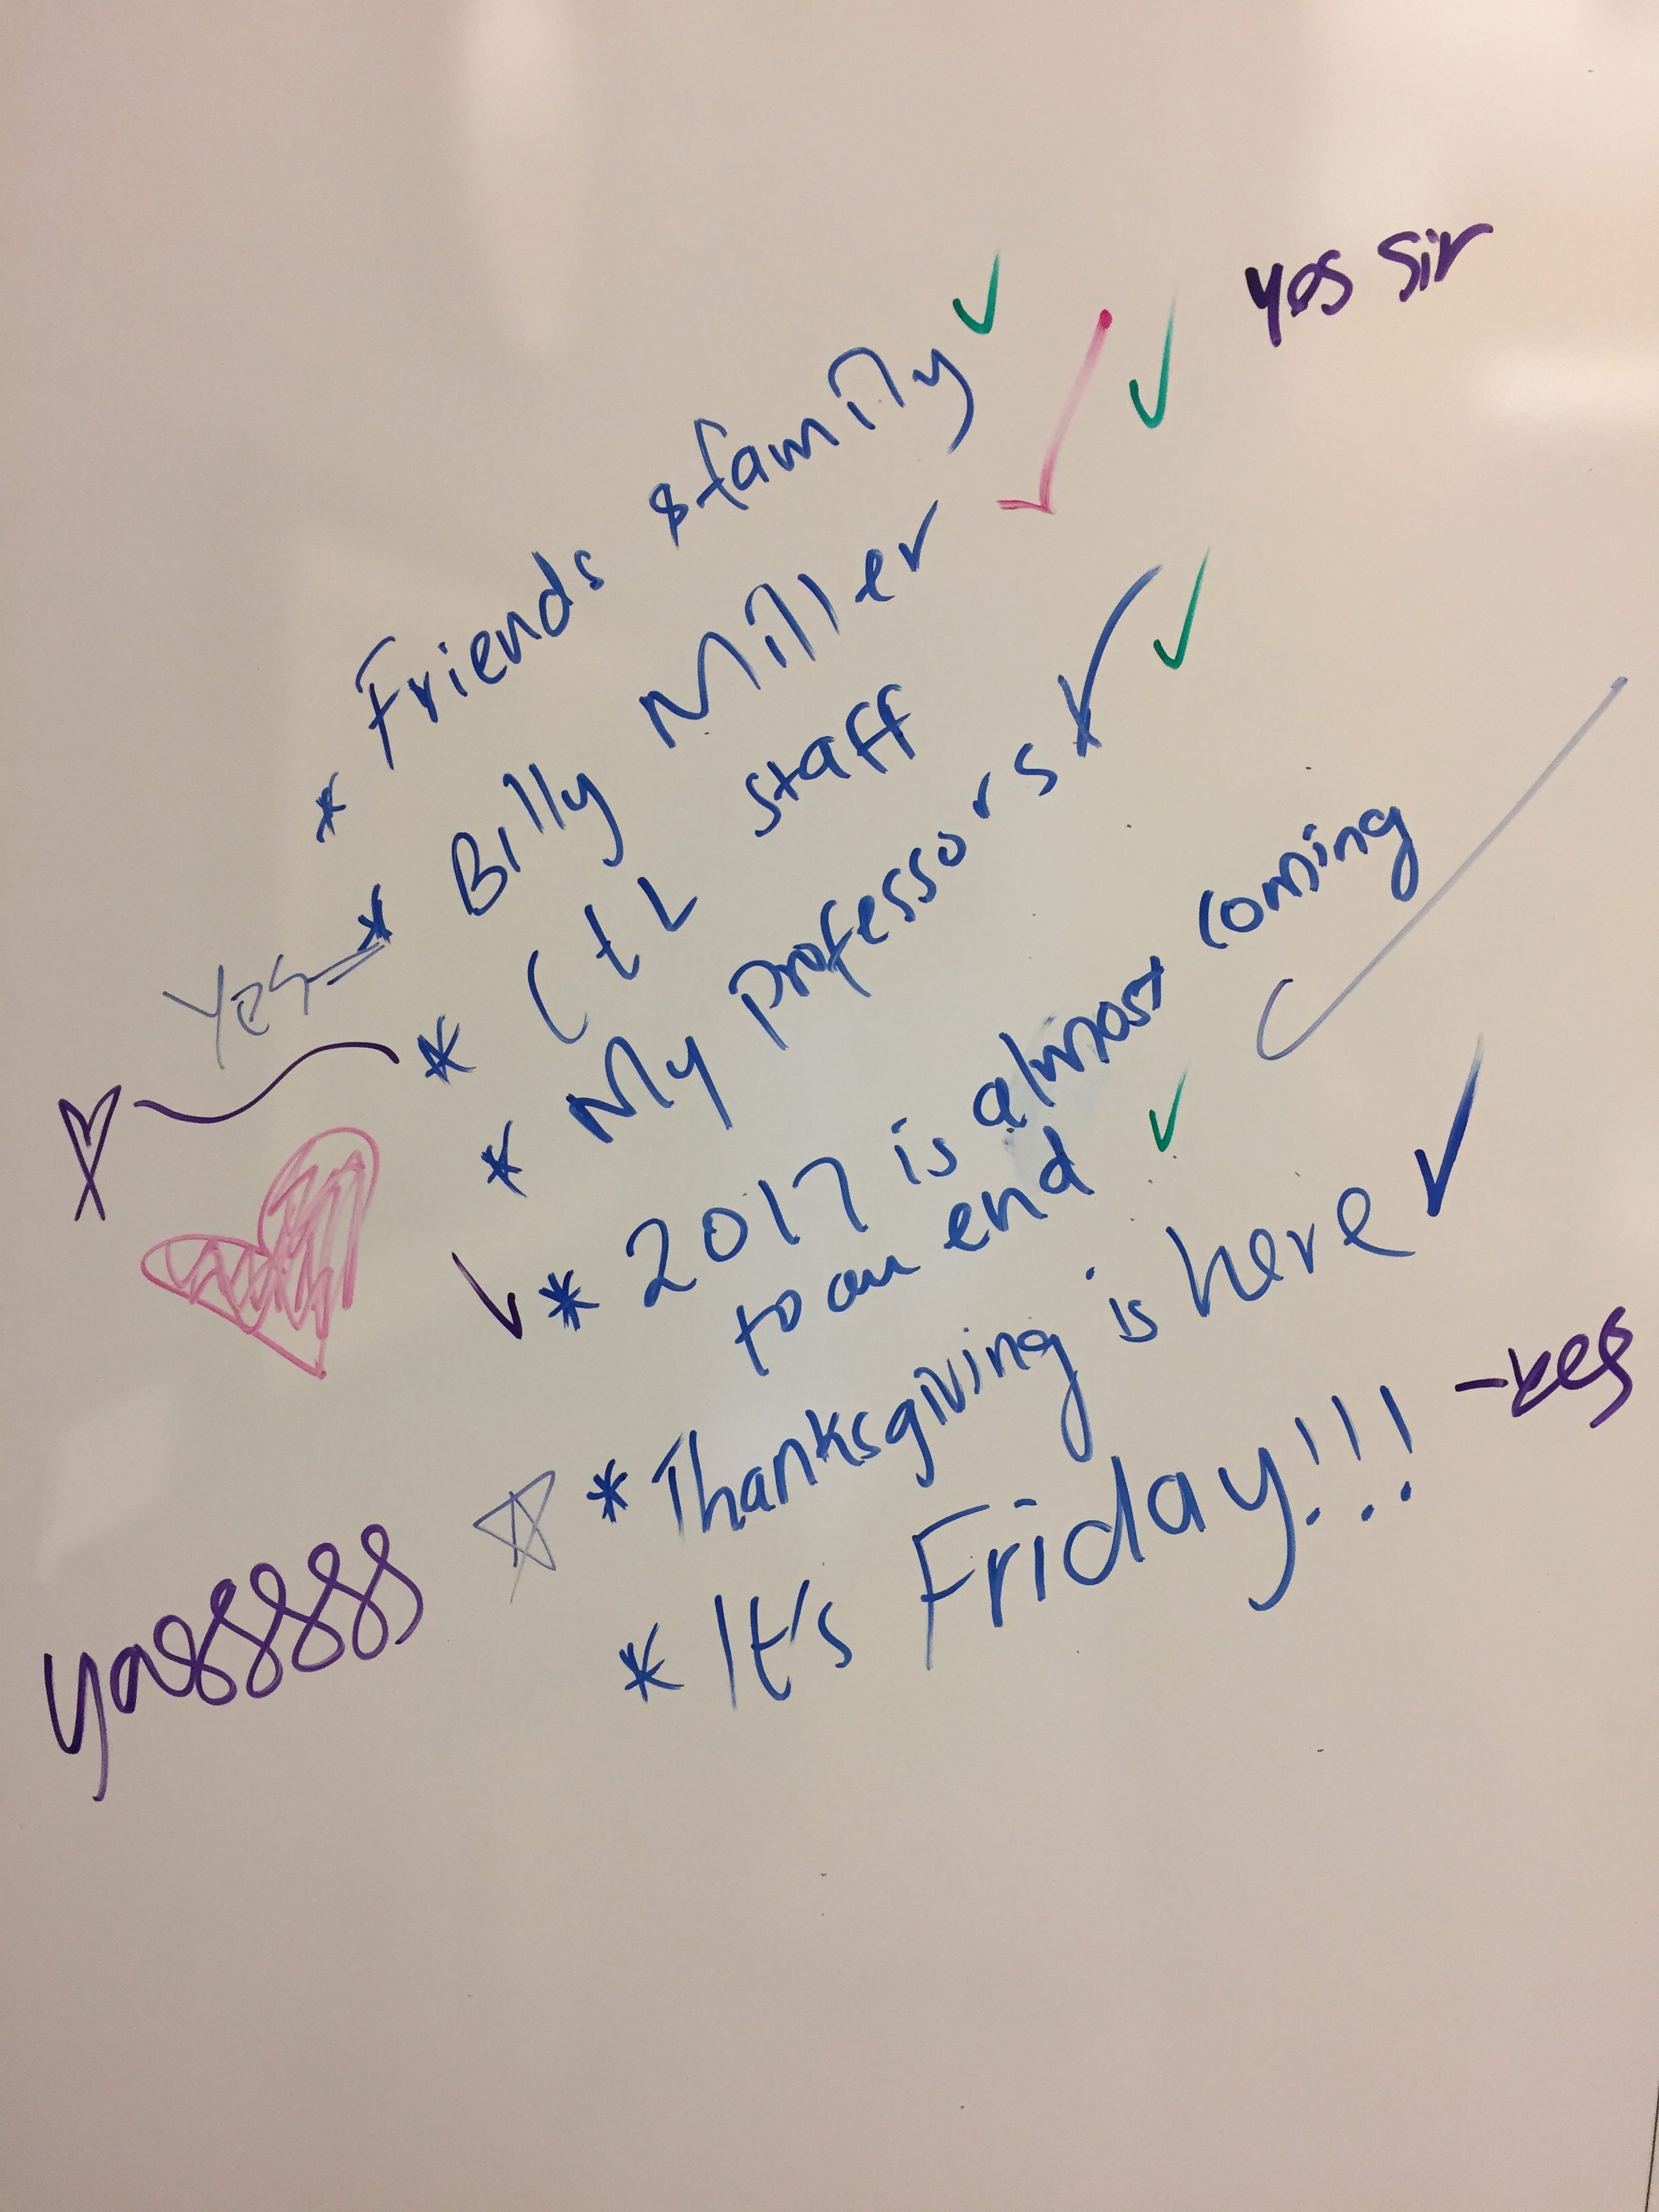 yes sir
* Friends & family ✓
Yes → * Billy Miller ✓ ✓
* CtL staff
* My professors ✓ ✓
✓ * 2017 is almost coming
to an end ✓
* Thanksgiving is here ✓
* It's Friday!!! - yes
yasssss